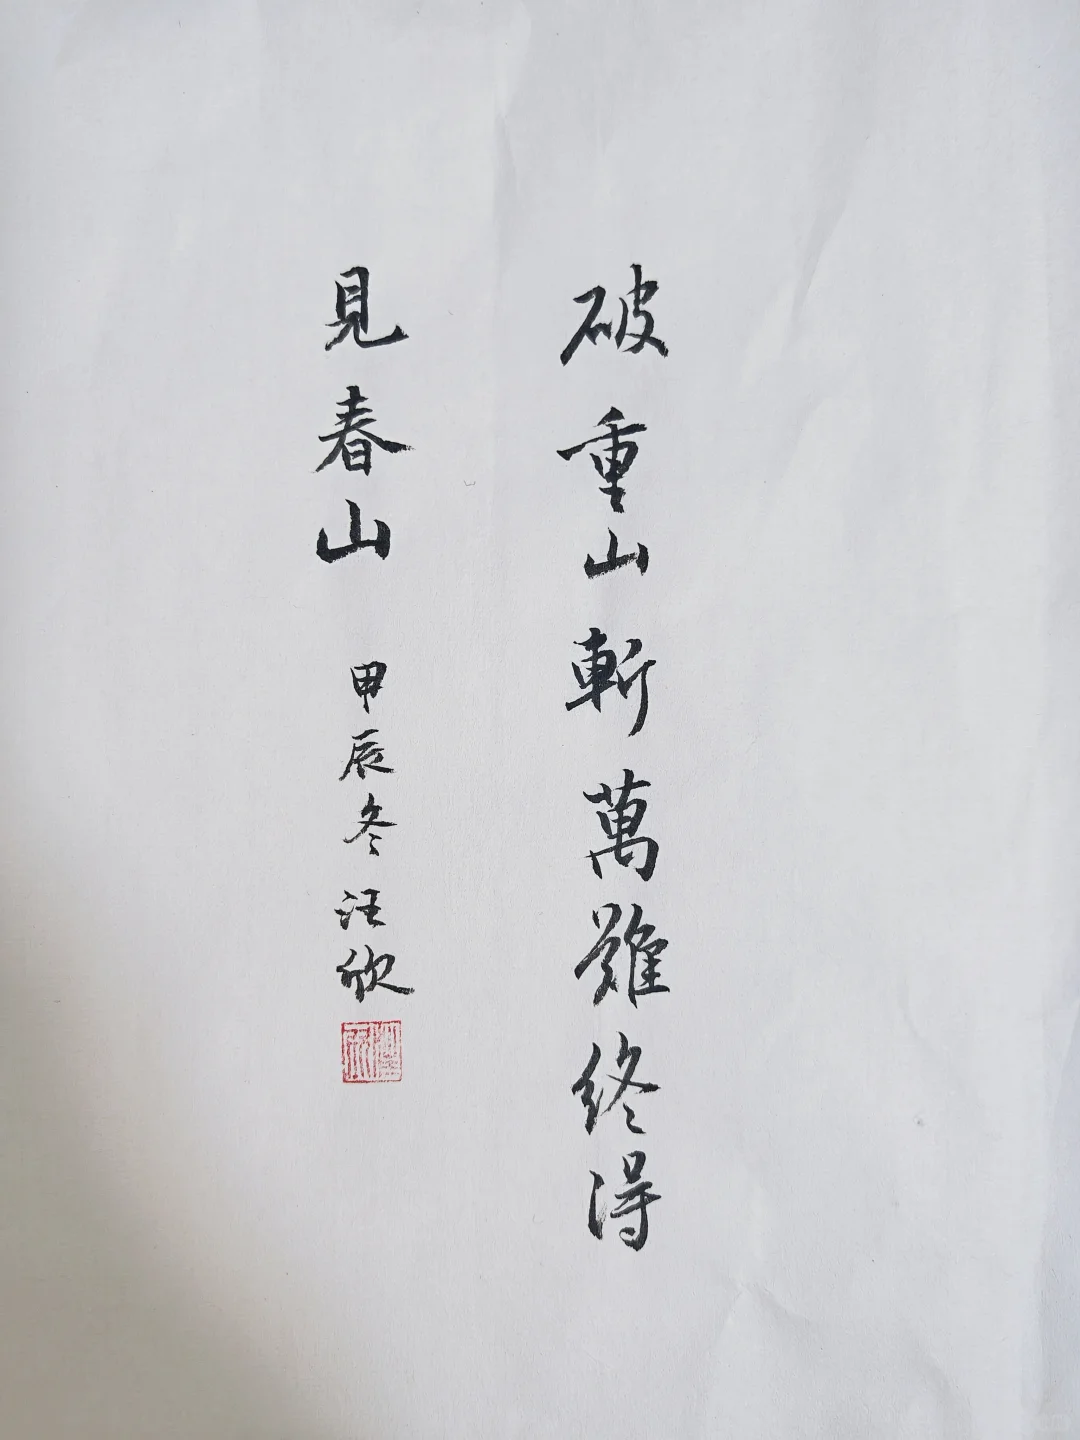 破重山斬萬難終得
見春山 甲辰冬汪欣